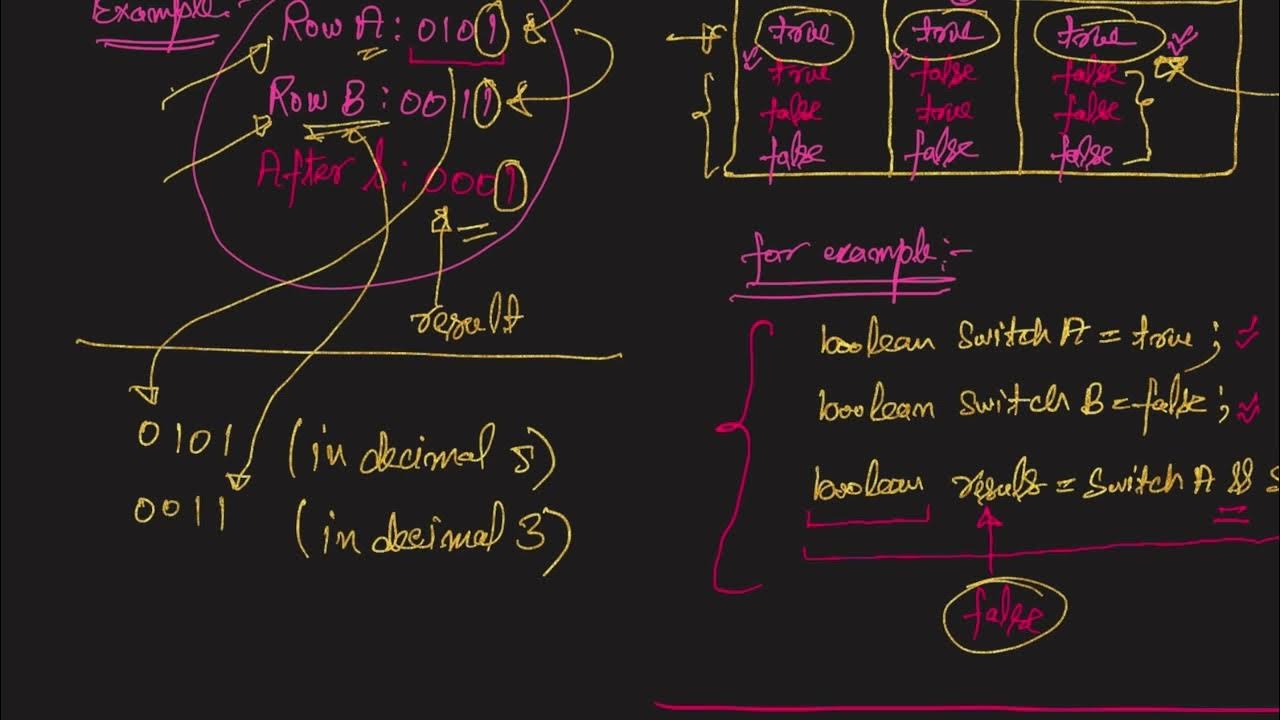 Example:-
Row A: 0101
Row B: 0011
After &: 0001
result
0101 (in decimal 5)
0011 (in decimal 3)
true true true
true false false
false true false
false false false
for example:-
boolean Switch A = true;
boolean switch B = false;
boolean result = Switch A &&
false